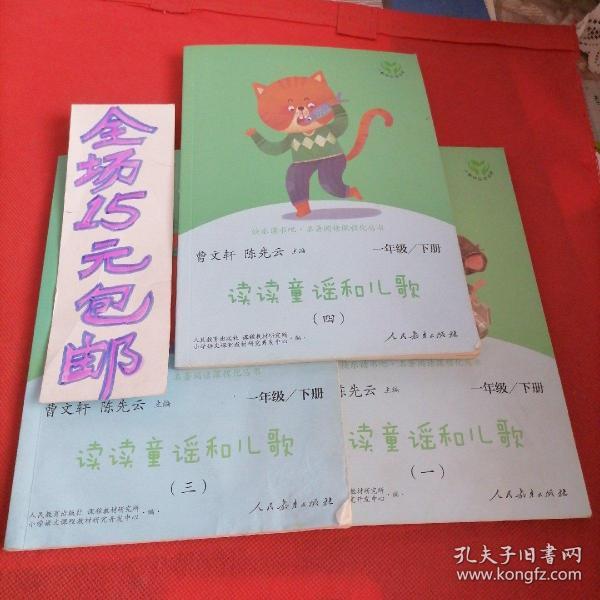 全场15元包邮
快乐读书吧·名著阅读课程化丛书
曹文轩 陈先云 主编
一年级/下册
读读童谣和儿歌
(四)
人民教育出版社 课程教材研究所
小学语文课程教材研究开发中心 ·编·
人民教育出版社
名著阅读课程化丛书
曹文轩 陈先云 主编
一年级/下册
读读童谣和儿歌
(三)
人民教育出版社 课程教材研究所
小学语文课程教材研究开发中心 ·编·
人民教育出版社
快乐读书吧·名著阅读课程化丛书
陈先云 主编
一年级/下册
读读童谣和儿歌
(一)
教材研究所
究开发中心 ·编·
人民教育出版社
孔夫子旧书网
www.kongfz.com